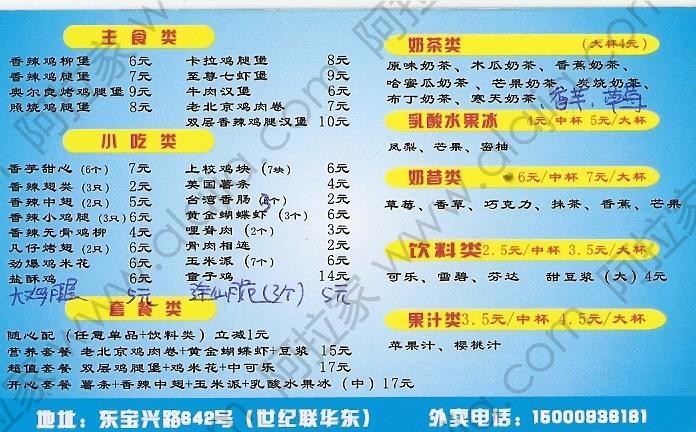 主食类
香辣鸡柳堡 6元 卡拉鸡腿堡 8元
香辣鸡腿堡 7元 至尊七虾堡 9元
奥尔良烤鸡腿堡 9元 牛肉汉堡 6元
照烧鸡腿堡 8元 老北京鸡肉卷 7元
双层香辣鸡腿汉堡 10元
小吃类
香芋甜心(6个) 7元 上校鸡块(7块) 6元
香辣翅类(3只) 2元 美国薯条 4元
香辣中翅(2只) 5元 台湾香肠 3(个) 2元
香辣小鸡腿(3只) 6元 黄金蝴蝶虾(3个) 6元
香辣无骨鸡柳 4元 哩脊肉(2个) 3元
凡仔烤翅(2只) 6元 骨肉相连 2元
劲爆鸡米花 6元 玉米派(7个) 6元
盐酥鸡 6元 童子鸡 14元
大鸡腿 5元 (3个) 5元
套餐类
随心配(任意单品+饮料类)立减1元
营养套餐 老北京鸡肉卷+黄金蝴蝶虾+豆浆 15元
超值套餐 双层鸡腿堡+鸡米花+中可乐 17元
开心套餐 薯条+香辣中翅+玉米派+乳酸水果冰(中)17元
奶茶类 (大杯4元)
原味奶茶、木瓜奶茶、香蕉奶茶、
哈蜜瓜奶茶、芒果奶茶、炭烧奶茶、
布丁奶茶、寒天奶茶、香芋、草莓
乳酸水果冰 4元/中杯 5元/大杯
凤梨、芒果、蜜柚
奶昔类 6元/中杯 7元/大杯
草莓、香草、巧克力、抹茶、香蕉、芒果
饮料类 2.5元/中杯 3.5元/大杯
可乐、雪碧、芬达 甜豆浆(大)4元
果汁类 3.5元/中杯 4.5元/大杯
苹果汁、樱桃汁
地址:东宝兴路842号(世纪联华东) 外卖电话:15000938181
阿拉家 www.alajia.com